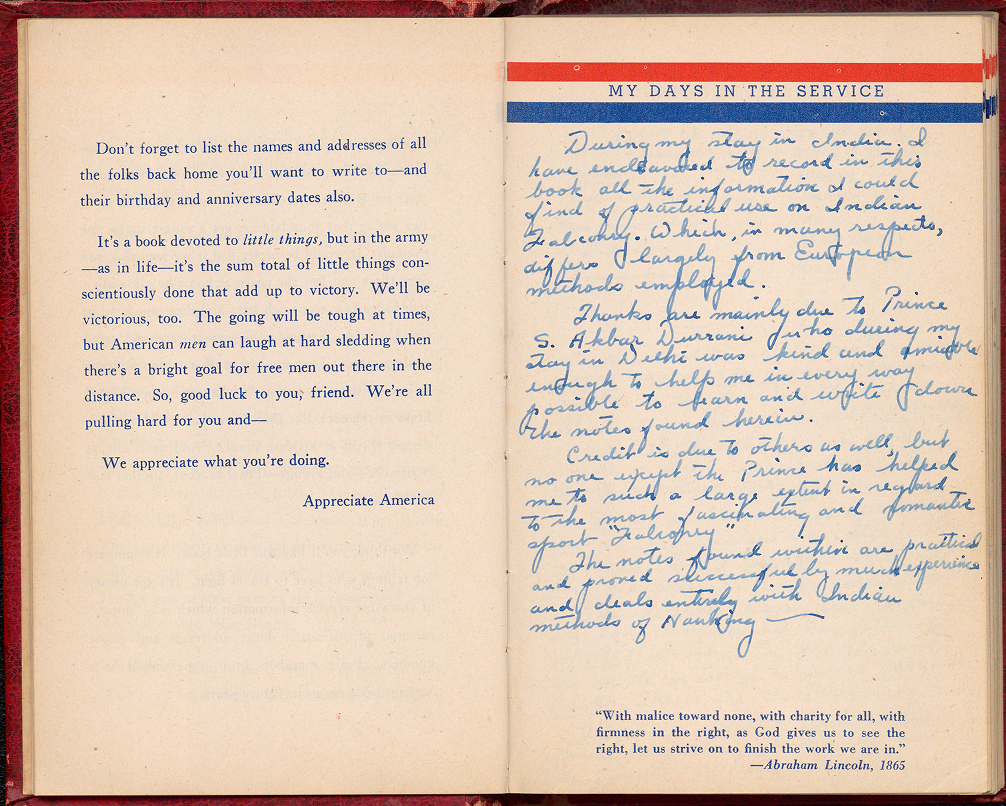 Don't forget to list the names and addresses of all
the folks back home you'll want to write to—and
their birthday and anniversary dates also.
It's a book devoted to little things, but in the army
—as in life—it's the sum total of little things con-
scientiously done that add up to victory. We'll be
victorious, too. The going will be tough at times,
but American men can laugh at hard sledding when
there's a bright goal for free men out there in the
distance. So, good luck to you, friend. We're all
pulling hard for you and—
We appreciate what you're doing.
Appreciate America
MY DAYS IN THE SERVICE
During my stay in India. I
have endeavored to record in this
book all the information I could
find of practical use on Indian
Falconry. Which, in many respects,
differs largely from European
methods employed.
Thanks are mainly due to Prince
S. Akbar Durrani who during my
stay in Delhi was kind and amiable
enough to help me in every way
possible to learn and write down
the notes found herein.
Credit is due to others as well, but
no one except the Prince has helped
me to such a large extent in regard
to the most fascinating and romantic
sport "Falconry"
The notes found within are practical
and proved successful by much experience
and deals entirely with Indian
methods of Hawking —
"With malice toward none, with charity for all, with
firmness in the right, as God gives us to see the
right, let us strive on to finish the work we are in."
—Abraham Lincoln, 1865